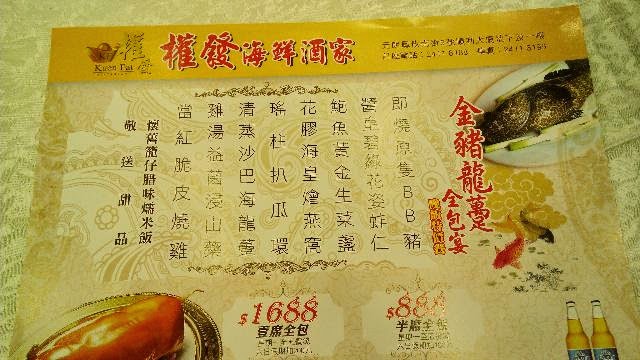 權發
Kuen Fat
權發海鮮酒家
金豬龍躉
全包宴
即燒原隻BB豬
醬皇碧綠花姿蚌仁
鮑魚黃金生菜盞
花膠海皇燴燕窩
瑤柱扒瓜環
清蒸沙巴海龍躉
雞湯滋菌浸山藥
當紅脆皮燒雞
懷舊籠仔腊味糯米飯
敬送甜品
$1688
壹席全包
$888
半席全包